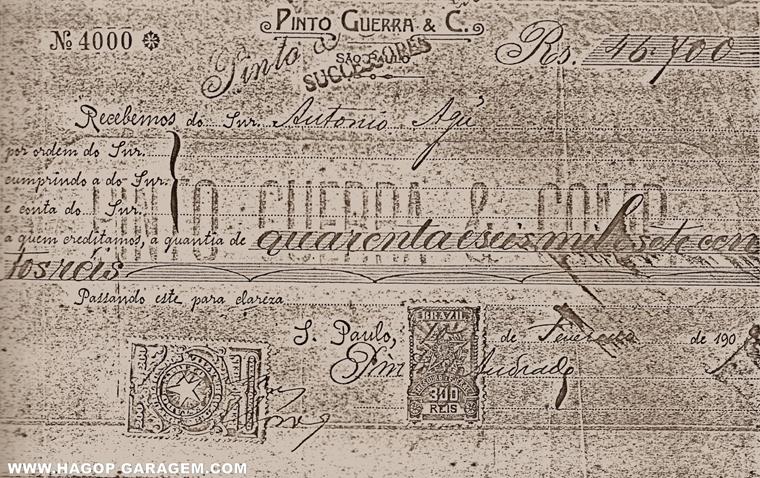 PINTO GUERRA & C.
São Paulo
Nº 4000
Pinto &
SUCCESSORES
Rs. 46.700
Recebemos do Snr. Antonio Agú
por ordem do Snr.
cumprindo a do Snr.
e conta do Snr.
PINTO GUERRA & COMP.
a quem creditamos, a quantia de quarenta e seis mil e sete cen
tos réis
Passando este para clareza
S. Paulo, de Fevereiro de 190
BRAZIL
Andrade
300
REIS
WWW.HAGOP GARAGEM.COM